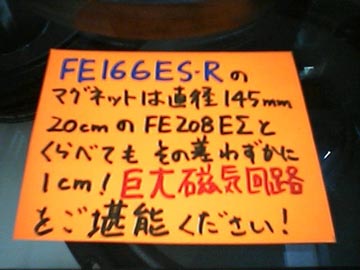 FE166ES・Rの
マグネットは直径145mm
20cmのFE208EΣと
くらべても その差わずかに
1cm! 巨大磁気回路
をご堪能ください!